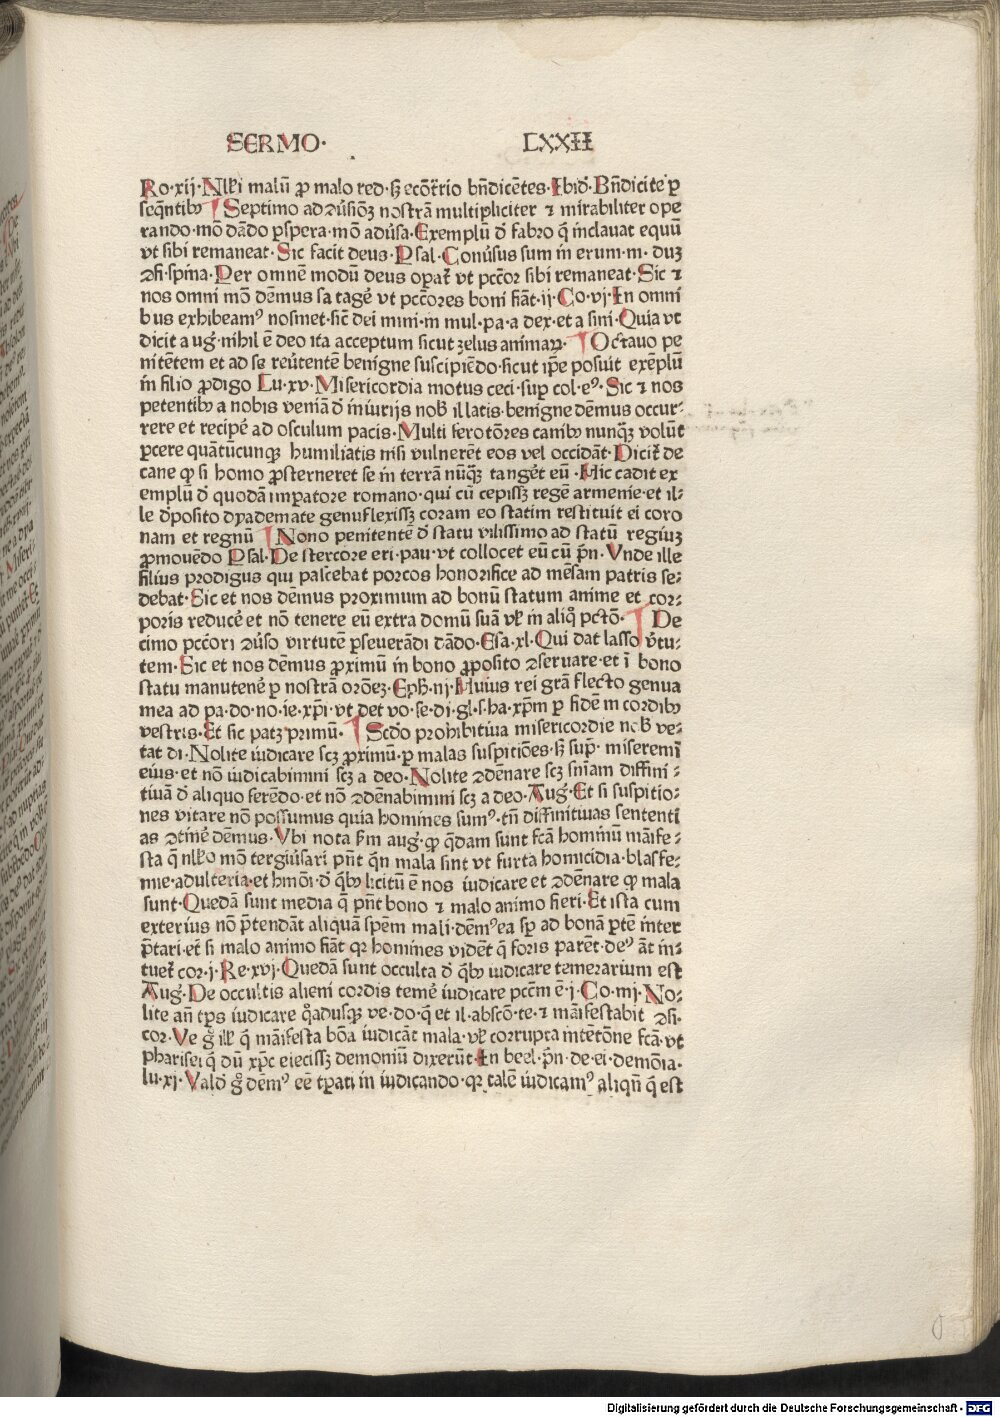 SERMO· LXXII
Ro·xij·Nłłi malū ꝓ malo red·sꝫ ecōtrio bn̄dicētes·Ibiđ·Bn̄dicite ꝑ
seqn̄tibꝫ ¶ Septimo ad ꝯūsiōꝫ nostrā multipliciter ⁊ mirabiliter ope
rando·mō dādo ꝓspera·mō adūsa·Exemplū đ fabro q̄ inclauat equū
vt sibi remaneat·Sic facit deus·Psal·Conūsus sum in erum·m·duꝫ
ꝯfi·spina·Per omnē modū deus oꝑat᷑ vt pctōr sibi remaneat·Sic ⁊
nos omni mō dēmus satagē vt pctōres boni fiāt·ij·Co·vj·In omni
bus exhibeamꝰ nosmet·sic̄ dei mini·in mul·pa·a dex·et a sini·Quia vt
dicit aug·nihil ē deo ita acceptum sicut zelus animaꝝ·¶ Octauo pe
nitētem et ad se reūtentē benigne suscipiēdo·sicut ip̄e posuit exēplū
in filio ꝓdigo Lu·xv·Misericordia motus ceci·suꝑ col·eꝰ·Sic ⁊ nos
petentibꝫ a nobis veniā đ iniurijs nob̄ illatis·benigne dēmus occur⸗
rere et recipē ad osculum pacis·Multi ferotōres canibꝫ nunqꝫ volūt
ꝑcere quātūcunqꝫ humiliatis nisi vulnerēt eos vel occidāt·Dicit᷑ de
cane ꝙ si homo ꝓsterneret se in terrā nūqꝫ tangēt eū·Hic cadit ex
emplū đ quodā imꝑatore romano·qui cū cepissꝫ regē armenie·et il⸗
le đposito dyademate genuflexissꝫ coram eo statim restituit ei coro
nam et regnū ¶ Nono penitentē đ statu vilissimo ad statū regiuꝫ
ꝓmouēdo Psal·De stercore eri·pau·vt collocet eū cū pn̄·Vnde ille
filius prodigus qui pascebat porcos honorifice ad mēsam patris se⸗
debat·Sic et nos dēmus proximum ad bonū statum anime et cor⸗
poris reducē et nō tenere eū extra domū suā vł in aliqͦ pctō·¶ De
cimo pctōri ꝯūso virtutē ꝑseuerādi dādo·Esa·xl·Qui dat lasso v̄tu⸗
tem·Sic et nos dēmus ꝓximū in bono ꝓposito ꝯseruare·et ī bono
statu manutenē ꝑ nostrā orōeꝫ·Eph·iij·Huius rei grā flecto genua
mea ad pa·do·no·ie·xp̄i·vt det vo·se·di·gl·s·ha·xp̄m ꝑ fidē in cordibꝫ
vestris·Et sic patꝫ primū·¶ Scd̄o prohibitiua misericordie nob̄ ve⸗
tat di·Nolite iudicare scꝫ ꝓximū·ꝑ malas suspitiōes·sꝫ sup̄· miseremī
eius·et nō iudicabimini scꝫ a deo·Nolite ꝯdēnare scꝫ sn̄iam diffini⸗
tiuā đ aliquo ferēdo·et nō ꝯdēnabimini scꝫ a deo·Aug·Et si suspitio⸗
nes vitare nō possumus quia homines sumꝰ·tn̄ diffinitiuas sententi
as ꝯtinē dēmus·Vbi nota s̄m aug·ꝙ q̄dam sunt fcā hominū māife⸗
sta q̄ nłło mō tergiūsari pn̄t qn̄ mala sint vt furta homicidia·blasfe⸗
mie·adulteria·et hmōi·đ qͥbꝫ licitū ē nos iudicare et ꝯdēnare ꝙ mala
sunt·Quedā sunt media q̄ pn̄t bono ⁊ malo animo fieri·Et ista cum
exterius nō p̄tendāt aliquā spēm mali·dēmꝰ ea sꝑ ad bonā ꝑtē inter
p̄tari·et si malo animo fiāt qꝛ homines vidēt q̄ foris parēt·deꝰ āt in⸗
tuet᷑ cor·j·Re·xvj·Quedā sunt occulta đ qͥbꝫ iudicare temerarium est
Aug·De occultis alieni cordis temē iudicare pctm̄ ē·j·Co·iiij·No⸗
lite an̄ tp̄s iudicare qͦadusqꝫ ve·do·q̄ et il·abscō·te·⁊ māifestabit ꝯsi·
cor·Ve g̊ illꝭ q̄ māifesta bōa iudicāt mala·vł corrupta intētōne fcā·vt
pharisei q̄ dū xp̄c eiecissꝫ demoniū dixerūt·In beel·pn̄·de·ei·demōia·
lu·xj·Valđ g̊ dēmꝰ eē tp̄ati in iudicando·qꝛ talē iudicamꝰ aliqn̄ q̄ est
Digitalisierung gefördert durch die Deutsche Forschungsgemeinschaft - DFG